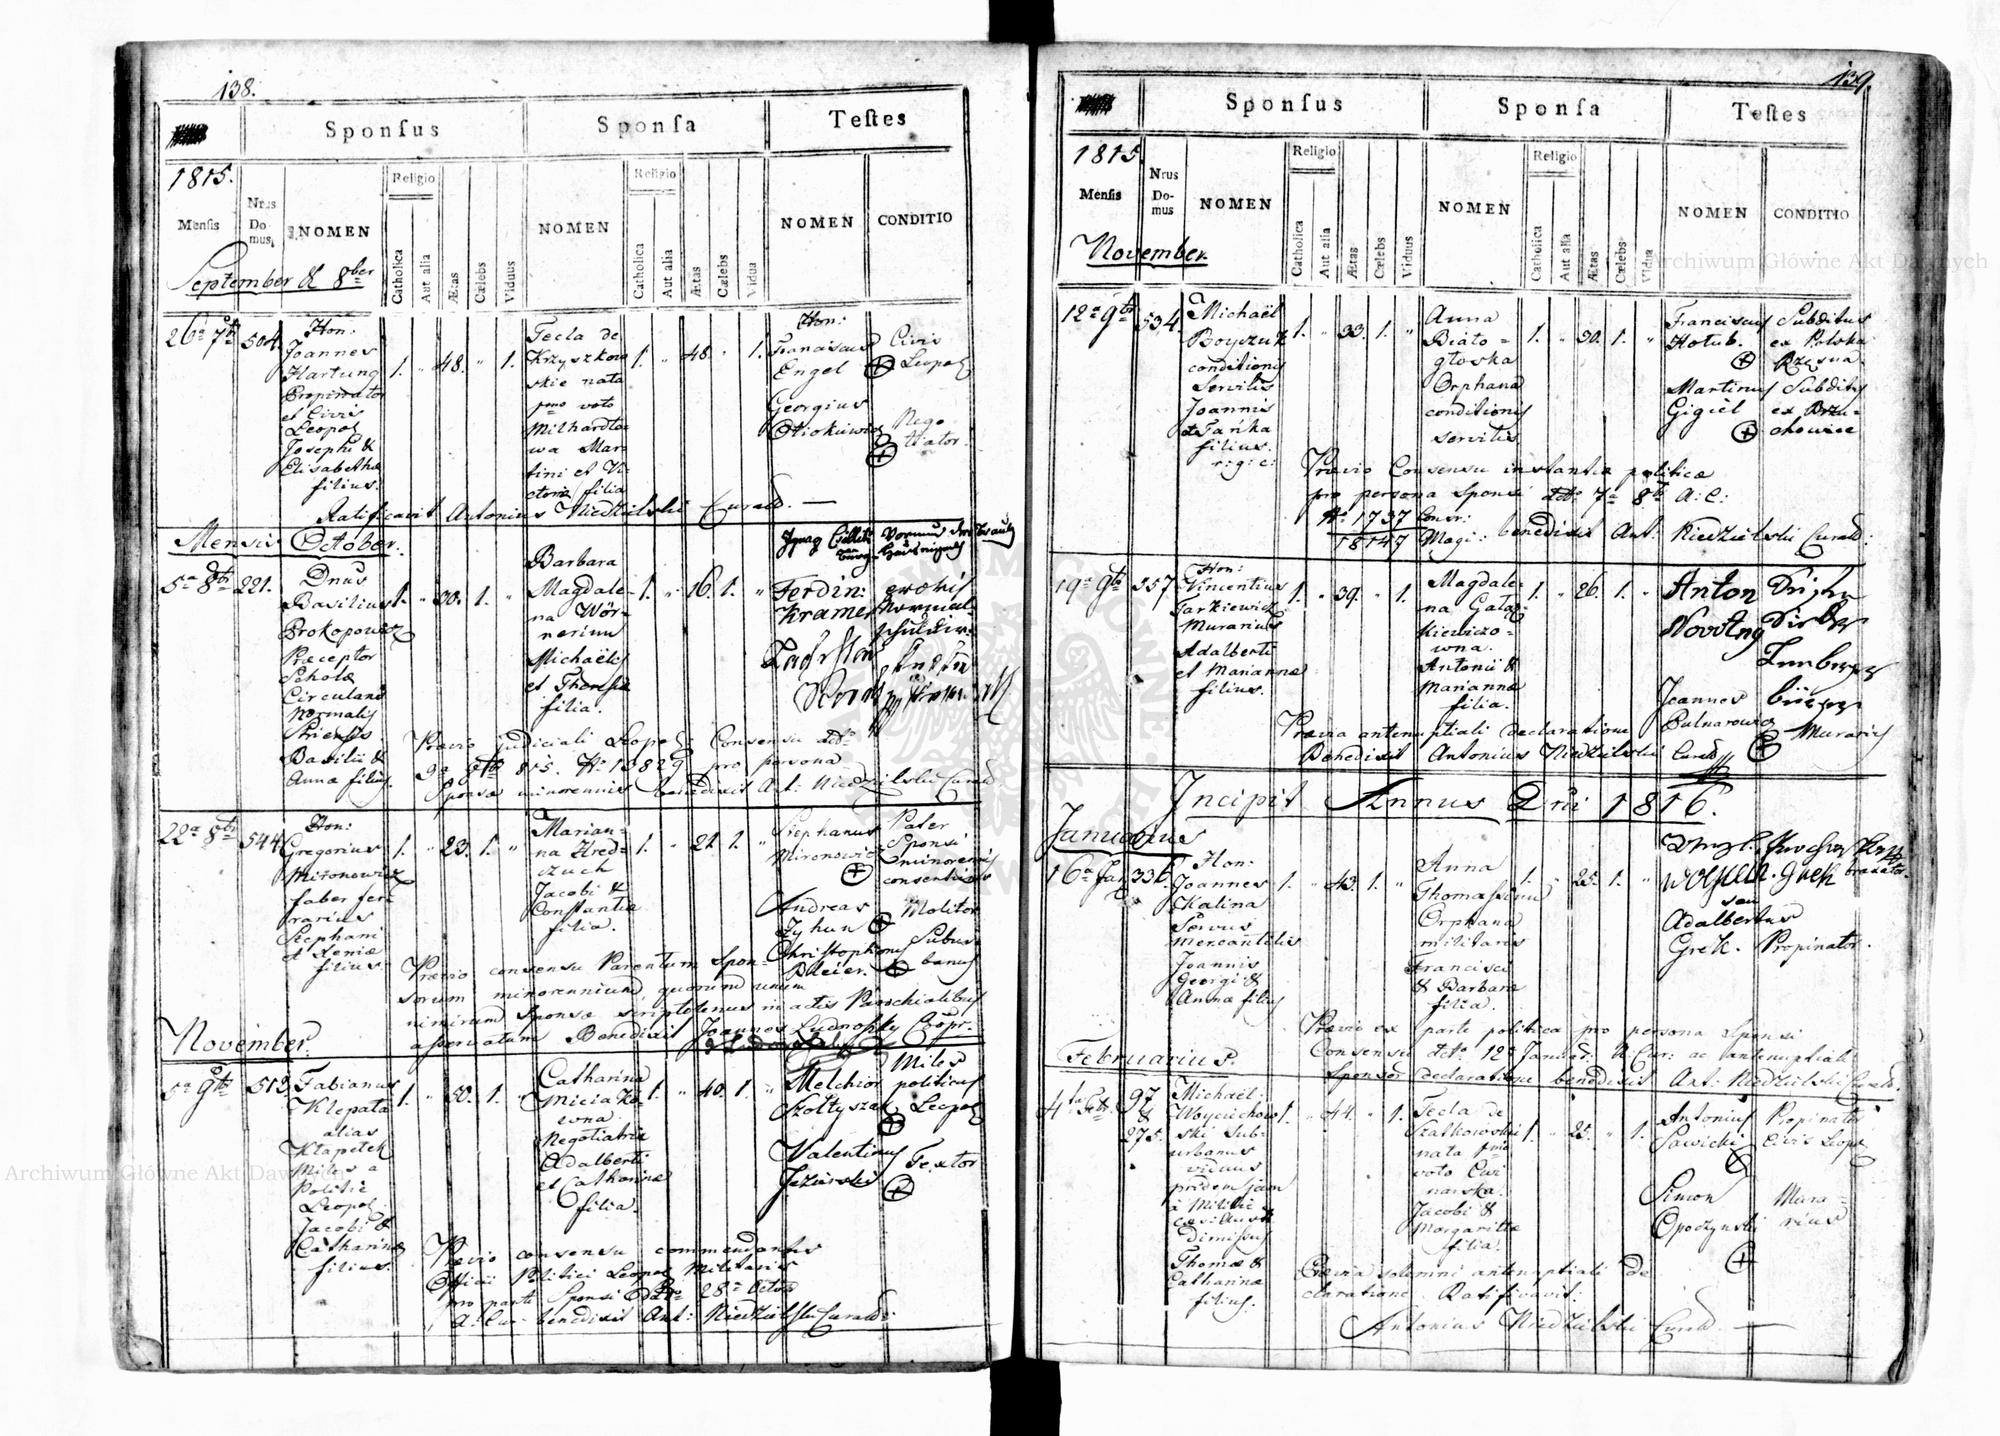 138.
Sponſus
Sponſa
Teſtes
1815.
Menſis
Nrus Domus
NOMEN
Religio
Catholica
Aut alia
Ætas
Cælebs
Viduus
NOMEN
Religio
Catholica
Aut alia
Ætas
Cælebs
Vidua
NOMEN
CONDITIO
September & 8ber
26a 7br
504.
Hon:
Joannes
Hartung
Propinator
et Civis
Leopol
Josephi &
Elisabethæ
filius.
1. " 48. " 1.
Tecla de
Krzyszkow
skie nata
pmo voto
Milhardto
wa Mar
tini et Vi
ctoriæ filia
1. " 48. " 1.
Hon:
Franciscus
Engel
Civis
Leopol
Georgius
Nego
tiator.
Ratificavit Antonius Niedzielski Curatd. —
Mensis October.
5a 8br
221.
Dnus
Basilius
Prokopowicz
Præceptor
Scholæ
Circularis
Normalis
Basilii &
Annæ filius.
1. " 30. 1. "
Barbara
Magdale-
na Wör-
nerinn
Michaelis
et Theresiæ
filia.
1. " 16. 1. "
Ferdin:
Kramer
Prævio judiciali Leopol: Consensu ddto
9a 8br 815. No 13829 pro persona
Sponsæ minorennis benedixit Ant: Niedzielski Curatd.
22a 8br
544
Hon:
Gregorius
Mironowicz
faber fer
rarius
Stephani
et Xeniæ
filius.
1. " 23. 1. "
Marian-
na Hred-
czuch
Jacobi &
Constantiæ
filia.
1. " 21. 1. "
Stephanus
Mironowicz
Pater
Sponsi
minorennis
consentiens
Andreas
Zyhun
Molitor
Christophorus
Pleier.
Subur
banus
Prævio consensu Parentum Spon-
sorum minorennium, quorum unum
nimirum Sponsæ scriptotenus in actis Parochialibus
asservatum Benedixit Joannes Ludnofsky Coopr.
November.
5a 9br
513.
Fabianus
Klepata
alias
Kłapitek
Miles a
Politiæ
Leopol
Jacobi &
Catharinæ
filius.
1. " 50. 1. "
Catharina
owna.
Negotiatrix
Adalberti
et Catharinæ
filia.
1. " 40. 1. "
Melchior
Szołtysek
Miles
politicus
Leopol
Valentinus
Jeziorski
Textor
Prævio consensu commendantis
Officii Politici Leopol Militaris
pro parte Sponsi ddto 28a Octob
A: Cur: benedixit Ant: Niedzielski Curatd:
139.
Sponſus
Sponſa
Teſtes
1815.
Menſis
Nrus Domus
NOMEN
Religio
Catholica
Aut alia
Ætas
Cælebs
Viduus
NOMEN
Religio
Catholica
Aut alia
Ætas
Cælebs
Vidua
NOMEN
CONDITIO
November.
12a 9br
534.
Michaël
Boyszuk
conditionis
Servilis
Joannis
et Tańka
filius.
r: g: c:
1. " 33. 1. "
Anna
Biało-
głoska
Orphana
conditionis
servilis
1. " 30. 1. "
Franciscus
Hołub.
Subditus
ex Polska
Rzęsna.
Martinus
Gigiel
Subditus
ex Brzu-
chowice
Prævio Consensu instantiæ politicæ
pro persona Sponsi ddto 7a 8br A: C:
No 1737 Conser:
18147 Magi: benedixit Ant: Niedzielski Curatd:
19a 9br
357
Hon:
Vincentius
Jarkiewicz
Murarius
Adalberti
et Mariannæ
filius.
1. " 39. " 1.
Magdale-
na Gałąz
kiewiczo-
wna.
Antonii &
Mariannæ
filia.
1. " 26. 1. "
Anton
Novotny
Joannes
Murarius
Prævia antenuptiali declaratione
Benedixit Antonius Niedzielski Curatd
Incipit Annus Dni 1816.
Januarius
16a Jan
336.
Hon:
Joannes
Kalina
Servus
Mercantilis
Joannis
Georgi &
Annæ filius
1. " 43. 1. "
Anna
Thomaſsinn
Orphana
militaris
Francisci
& Barbaræ
filia.
1. " 25. 1. "
seu
Adalbertus
Grek.
Propinator.
Prævio ex parte politica pro persona Sponsi
Consensu ddto 12a Januar: A: Cur: ac antenuptiali
Sponsor declaratione benedixit Ant: Niedzielski Curatd.
Februarius.
4ta Febr
97
&
275.
Michaël
Woyciechow
ski Sub-
urbanus
viduus
pridem jam
a Militiæ
cæs: Aust
dimissus
Thomæ &
Catharinæ
filius.
1. " 44. " 1.
Tecla de
Szałkowskie
nata pmo
voto Cwi
narska.
Jacobi &
Margarittæ
filia.
1. " 25. " 1.
Antonius
Sawicki
Propinator
Civis Leopol
Simon
Opoczynski
Mura-
rius
Prævia solemni antenuptiali De
claratione Ratificavit:
Antonius Niedzielski Curatd. —
Archiwum Główne Akt Dawnych
Archiwum Główne Akt Dawnych